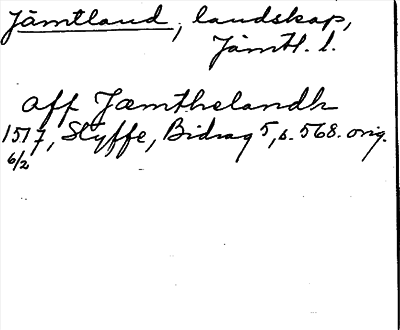 Jämtland, landskap,
Jämtl. l.
aff Jæmthelandh
1517, Styffe, Bidrag 5, s. 568. orig.
6/2